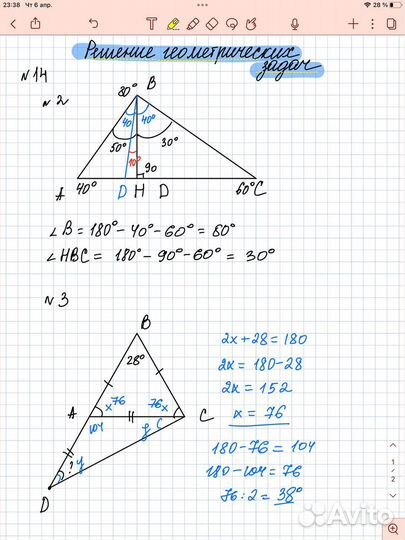 23:38 Чт 6 апр.
28 %
Решение геометрических
задач
№14
№2
80° B
40 40°
50° 30°
10°
90
A 40° D H D 60° C
∠B = 180° - 40° - 60° = 80°
∠HBC = 180° - 90° - 60° = 30°
№3
B
28°
A x 76 76 x C
104 y C
? y
D
2x + 28 = 180
2x = 180 - 28
2x = 152
x = 76
180 - 76 = 104
180 - 104 = 76
76 : 2 = 38°
1
2
Avito